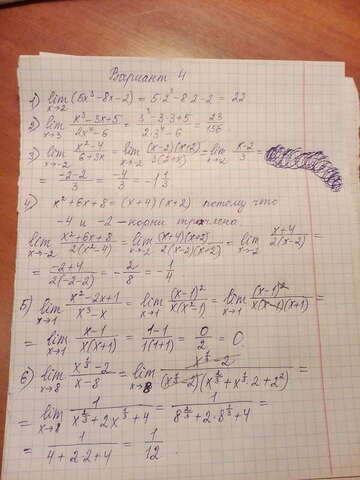 Вариант 4
1) lim x→2 (5x³-8x-2) = 5·2³-8·2-2 = 22
2) lim x→3 (x³-3x+5)/(2x⁴-6) = (3³-3·3+5)/(2·3⁴-6) = 23/156
3) lim x→-2 (x²-4)/(6+3x) = lim x→-2 (x-2)(x+2)/3(2+x) = lim x→-2 (x-2)/3 =
= (-2-2)/3 = -4/3 = -1 1/3
4) x²+6x+8 = (x+4)(x+2) потому что
-4 и -2 - корни трёхчлена.
lim x→-2 (x²+6x+8)/2(x²-4) = lim x→-2 (x+4)(x+2)/2(x-2)(x+2) = lim x→-2 (x+4)/2(x-2) =
= (-2+4)/2(-2-2) = -2/8 = -1/4
5) lim x→1 (x²-2x+1)/(x³-x) = lim x→1 (x-1)²/x(x²-1) = lim x→1 (x-1)²/x(x-1)(x+1) =
= lim x→1 (x-1)/x(x+1) = (1-1)/1(1+1) = 0/2 = 0.
6) lim x→8 (x^⅓-2)/(x-8) = lim x→8 (x^⅓-2)/(x^⅓-2)(x^⅔+x^⅓·2+2²) =
= lim x→8 1/(x^⅔+2x^⅓+4) = 1/(8^⅔+2·8^⅓+4) =
= 1/(4+2·2+4) = 1/12.